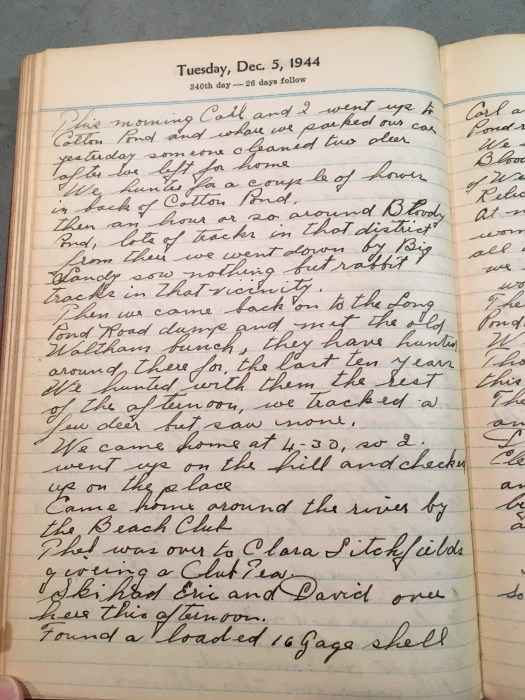 Tuesday, Dec. 5, 1944
340th day — 26 days follow
This morning Carl and I went up to
Cotton Pond and where we parked our car
yesterday someone cleaned two deer
after we left for home
We hunted for a couple of hours
in back of Cotton Pond.
then an hour or so around Bloody
Pond, lots of tracks in that district
from there we went down by Big
Sandy saw nothing but rabbit
tracks in that vicinity.
Then we came back on to the Long
Pond Road dump and met the old
Waltham bunch, they have hunted
around there for the last ten years
We hunted with them the rest
of the afternoon, we tracked a
few deer but saw none.
We came home at 4-30, so I
went up on the hill and checked
up on the place
Came home around the river by
the Beach Club
Phel was over to Clara Litchfields
giveing a Club Tea.
Ski had Eric and David over
here this afternoon.
Found a loaded 16 Gage shell
Carl a
Pond
We
Blood
of
Relic
At
wom
all
we
wo
The
Pond
W
Tho
this
The
an
Cle
an
be
a
so